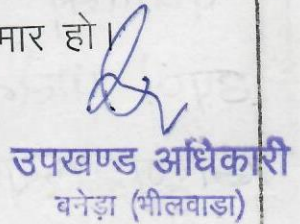 मार हो।
उपखण्ड अधिकारी
बनेड़ा (भीलवाडा)